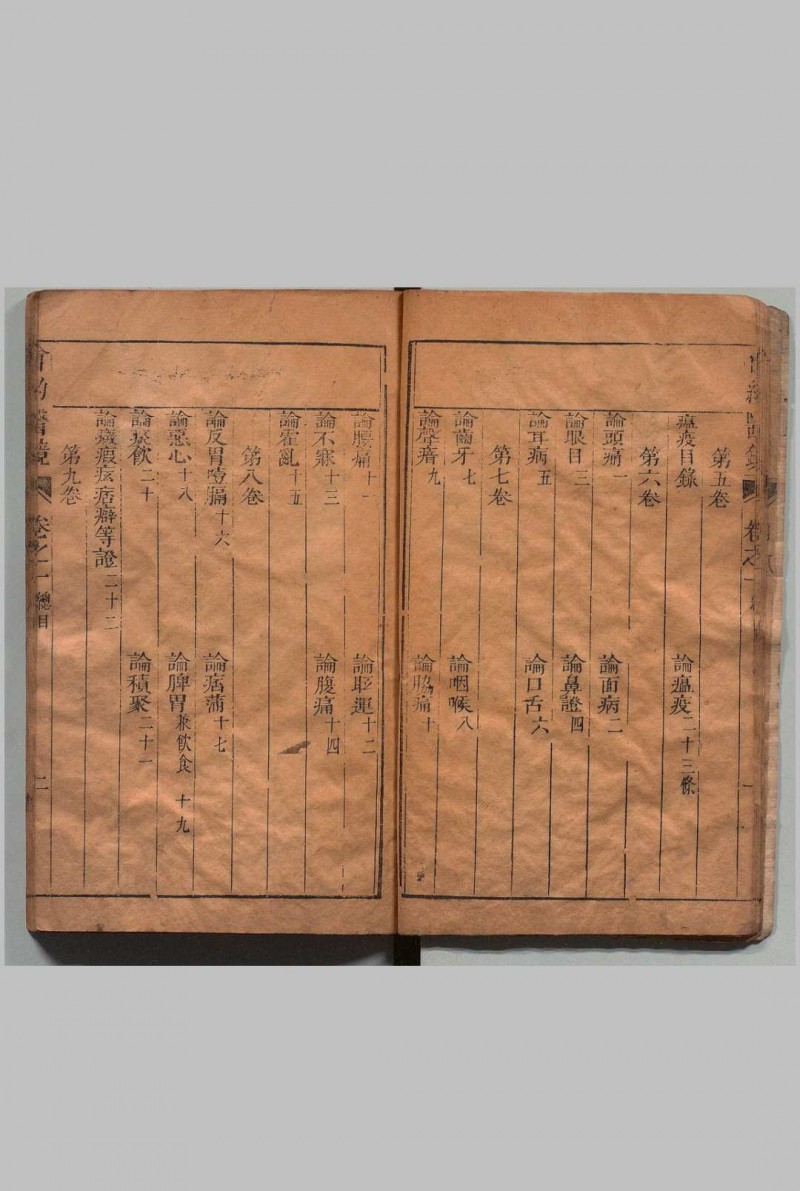 第五卷
瘟疫目錄 論瘟疫二十三條
第六卷
論頭痛一 論面病二
論眼目三 論鼻證四
論耳病五 論口舌六
第七卷
論齒牙七 論咽喉八
論聲瘖九 論脇痛十
論腰痛十一 論眩運十二
論不寐十三 論腹痛十四
論霍亂十五
第八卷
論反胃噎膈十六 論痞滿十七
論惡心十八 論脾胃兼飲食 十九
論痰飲二十 論積聚二十一
論癥瘕痃痞癖等證二十三
第九卷
會約醫鏡 卷之一 總目 二